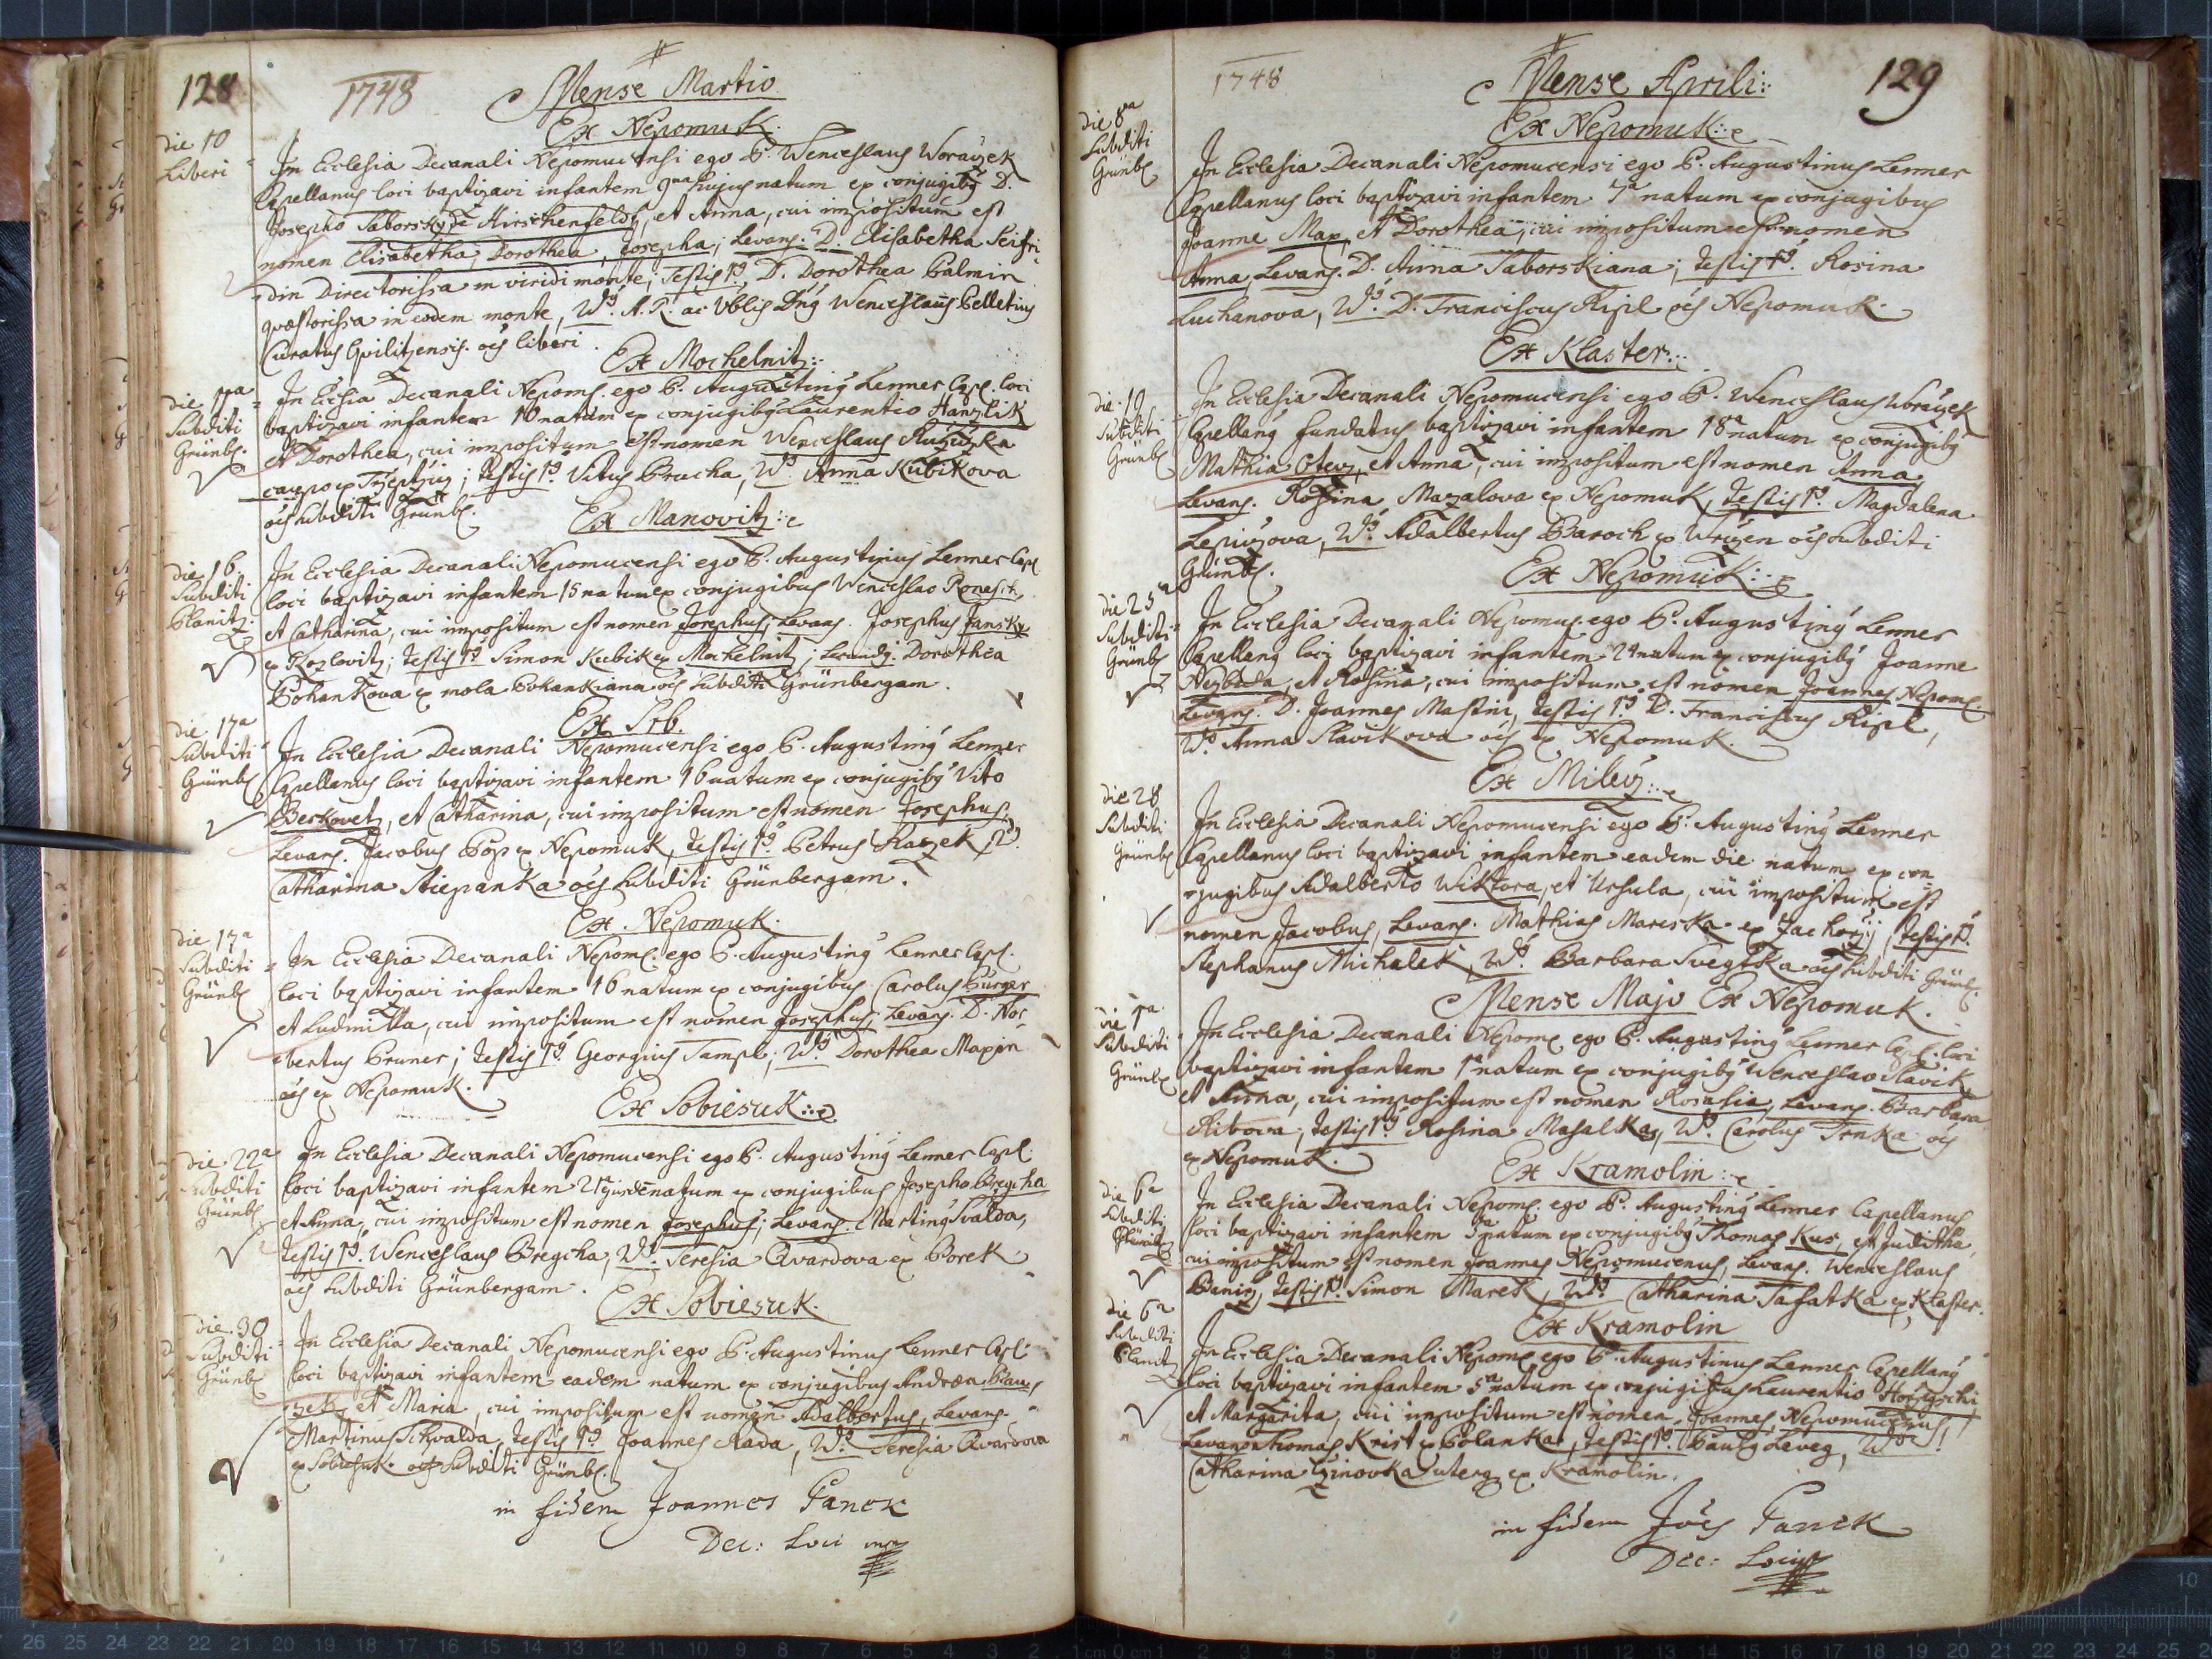 128
1748
Mense Martio
Ex Nepomuk.
die 10
Liberi
In Ecclesia Decanali Nepomucensi ego P. Wenceslaus Woraczek
Capellanus loci baptizavi infantem 9na hujus natum ex conjugibq D.
Josepho Taborsky de Hirschenfeldt, et Anna, cui impositum est
nomen Elisabetha, Dorothea, Josepha, Levans. D. Elisabetha Seifri-
din Directorissa in viridi monte; Testis 1q. D. Dorothea Palmin
quaestorissa in eodem monte, 2dq. A. R. ac Nblis Dnq Wenceslaus Pelletius
Curatus Qvilitzensis. oes liberi.
Ex Mochelnitz
die 11a
Subditi
Grünb.
In Ecclesia Decanali Nepom. ego P. Augustinq Lenner Capl. loci
baptizavi infantem 10 natum ex conjugibq Laurentio Hanzlik
et Dorothea, cui impositum est nomen Wenceslaus
Testis 1q. Vitus Brucha, 2dq. Anna Kubikova
oes subditi Grünb.
Ex Manovitz
die 16.
Subditi
Planitz.
In Ecclesia Decanali Nepomucensi ego P. Augustinus Lenner Capl.
loci baptizavi infantem 15 natum ex conjugibus Wenceslao
et Catharina, cui impositum est nomen Josephus, Levans. Josephus Jansky
ex Kozlovitz; testis 1q. Simon Kubik ex Mochelnitz; secundq. Dorothea
Pohankova ex mola Pohankiana oes subditi Grünbergam.
Ex Srb.
die 17a
Subditi
Grünb.
In Ecclesia Decanali Nepomucensi ego P. Augustinq Lenner
Capellanus loci baptizavi infantem 16 natum ex conjugibq Vito
Berkovetz, et Catharina, cui impositum est nomen Josephus,
Levans. Jacobus Pop ex Nepomuk, testis 1q. Petrus Raczek, 2dq.
Catharina Stiepanka oes subditi Grünbergam.
Ex Nepomuk.
die 17a
Subditi
Grünb.
In Ecclesia Decanali Nepom. ego P. Augustinq Lenner Capl.
loci baptizavi infantem 16 natum ex conjugibus Carolus Burger
et Ludmilla, cui impositum est nomen Josephus, Levans. D. Nor-
bertus Bruner; testis 1q. Georgius Tampl; 2dq. Dorothea Maxin
oes ex Nepomuk.
Ex Sobiesuk
die 22a
Subditi
Grünb.
In Ecclesia Decanali Nepomucensi ego P. Augustinq Lenner Capl.
loci baptizavi infantem 21 ejusde natum ex conjugibus Josepho Bregcha
et Anna, cui impositum est nomen Josephus; Levans. Martinq Svalda,
testis 1q. Wenceslaus Bregcha, 2dq. Teresia Qvardova ex Borek
oes subditi Grünbergam.
Ex Sobiesuk.
die 30
Subditi
Grünb.
In Ecclesia Decanali Nepomucensi ego P. Augustinus Lenner Capl.
loci baptizavi infantem eadem natum ex conjugibus Andrea Blaus
zek, et Maria, cui impositum est nomen Adalbertus, Levans.
Martinus Schvalda, testis 1q. Joannes Rada, 2dq. Teresia Qvardova
ex Sobiesuk. oes subditi Grünb.
in fidem Joannes Panek
Dec: Loci mp
1748
Mense Aprili
129
Ex Nepomuk
die 8a
Subditi
Grünb.
In Ecclesia Decanali Nepomucensi ego P. Augustinus Lenner
Capellanus loci baptizavi infantem 7a natum ex conjugibus
Joanne Max, et Dorothea, cui impositum est nomen
Anna, Levans. D. Anna Taborskiana; testis 1q. Rosina
Luchanova, 2dq. D. Franciscus Ripl oes Nepomuk.
Ex Klaster
die 19
Subditi
Grünb.
In Ecclesia Decanali Nepomucensi ego P. Wenceslaus Woraczek
Capellanq fundatus baptizavi infantem 18a natum ex conjugibq
Mathia et Anna, cui impositum est nomen Anna,
Levans. Rosina Mazalova ex Nepomuk, testis 1q. Magdalena
2dq. Adalbertus Baroch ex oes subditi
Grünb.
Ex Nepomuk
die 25a
Subditi
Grünb.
In Ecclesia Decanali Nepomuc. ego P. Augustinq Lenner
Capellanq loci baptizavi infantem 24 natum ex conjugibq Joanne
et Rosina, cui impositum est nomen Joannes Nepom.
Levans. D. Joannes Mastni, testis 1q. D. Franciscus Ripl,
2dq. Anna Slavikova oes ex Nepomuk.
Ex Milecz
die 28
Subditi
Grünb.
In Ecclesia Decanali Nepomucensi ego P. Augustinq Lenner
Capellanus loci baptizavi infantem eadem die natum ex con-
jugibus Adalberto Wiktora, et Ursula, cui impositum est
nomen Jacobus, Levans. Mathias Mareska ex testis 1q.
Stephanus Michalek, 2dq. Barbara oes subditi Grünb.
Mense Majo Ex Nepomuk.
die 1a
Subditi
Grünb.
In Ecclesia Decanali Nepom. ego P. Augustinq Lenner Capl. loci
baptizavi infantem 1a natum ex conjugibq Wenceslao Slavik
et Anna, cui impositum est nomen Rosalia, Levans. Barbara
Ribova, testis 1q. Rosina Masalka, 2dq. Carolus Trnka oes
ex Nepomuk.
Ex Kramolin
die 6a
Subditi
Planitz
In Ecclesia Decanali Nepom. ego P. Augustinq Lenner Capellanus
loci baptizavi infantem 5a natum ex conjugibq Thomas Kus, et Juditha,
cui impositum est nomen Joannes Nepomucenus, Levans. Wenceslaus
testis 1q. Simon Marek, 2dq. Catharina Tafatka ex Klaster.
Ex Kramolin
die 6a
Subditi
Planitz
In Ecclesia Decanali Nepom. ego P. Augustinus Lenner Capellanq
loci baptizavi infantem 5a natum ex conjugibus Laurentio
et Margarita, cui impositum est nomen Joannes Nepomucenus,
Levans Thomas Krist ex Polanka, testis 1q. Paulq Leveg, 2dq.
Catharina uterq ex Kramolin.
in fidem Joes Panek
Dec: Loci mp